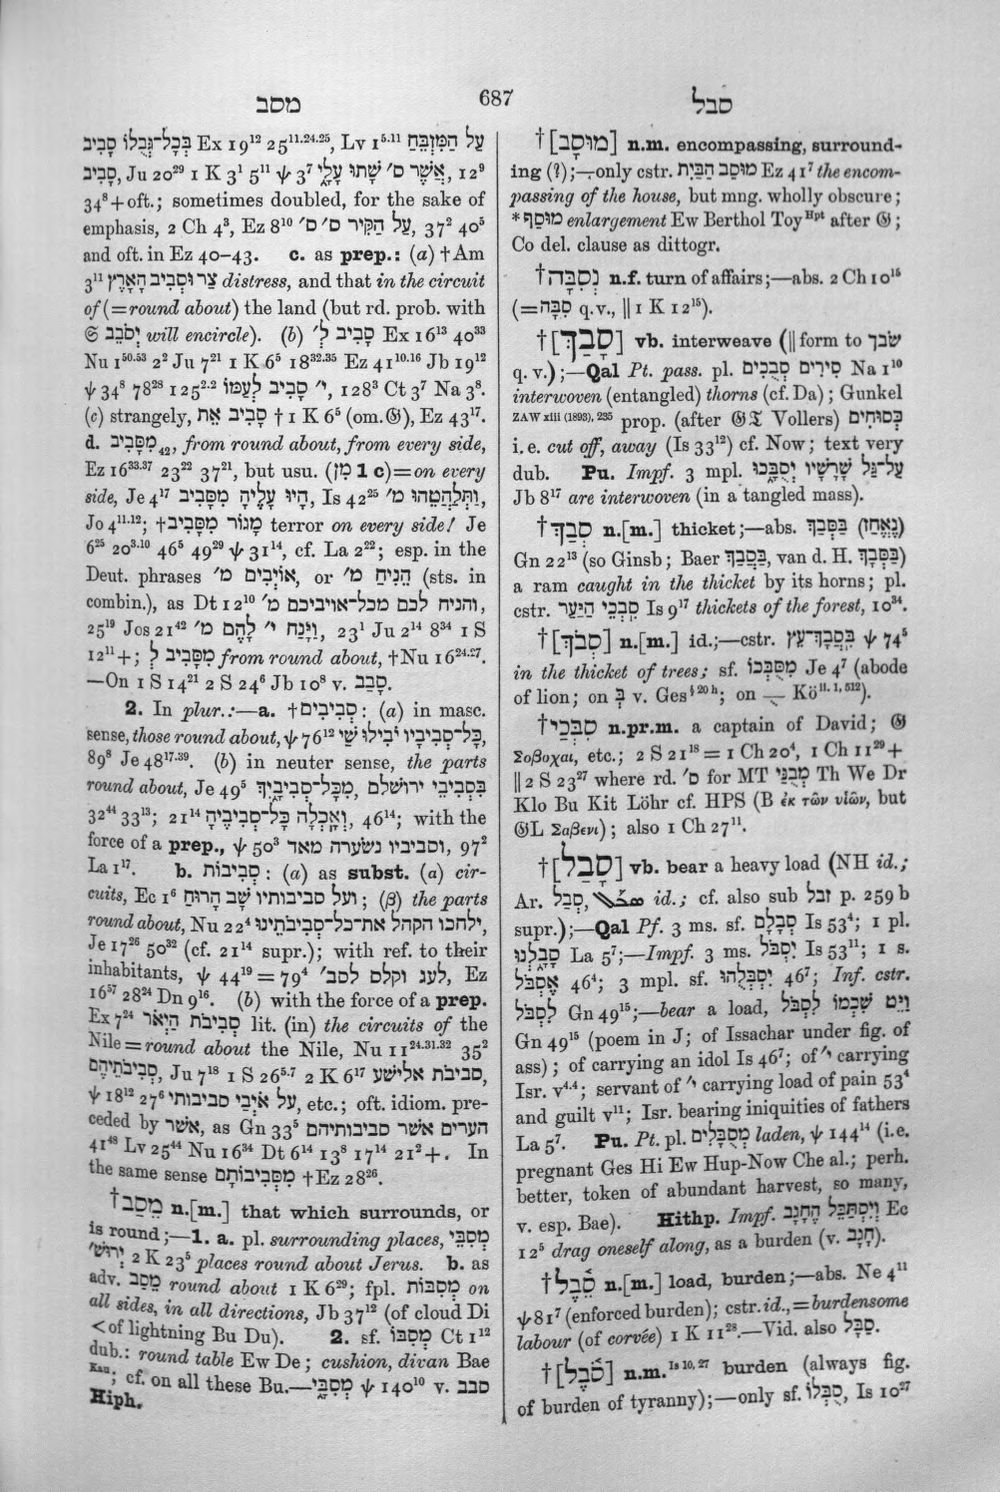 מסב
687
סבל
בְּכָל־גְּבֻלוֹ סָבִיב Ex 19¹² 25¹¹·²⁴·²⁵, Lv 1⁵·¹¹ עַל הַמִּזְבֵּחַ
סָבִיב, Ju 20²⁹ 1 K 3¹ 5¹¹ ψ 3⁷ אֲשֶׁר ס׳ שָׁתוּ עָלָי, 12⁹
34⁸ + oft.; sometimes doubled, for the sake of
emphasis, 2 Ch 4³, Ez 8¹⁰ עַל הַקִּיר ס׳ ס׳, 37² 40⁵
and oft. in Ez 40–43. c. as prep.: (a) † Am
3¹¹ צַר וּסְבִיב הָאָרֶץ distress, and that in the circuit
of (= round about) the land (but rd. prob. with
𝔖 יְסֹבֵב will encircle). (b) סָבִיב לְ׳ Ex 16¹³ 40³³
Nu 1⁵⁰·⁵³ 2² Ju 7²¹ 1 K 6⁵ 18³²·³⁵ Ez 41¹⁰·¹⁶ Jb 19¹²
ψ 34⁸ 78²⁸ 125²·² י׳ סָבִיב לְעַמּוֹ, 128³ Ct 3⁷ Na 3⁸.
(c) strangely, סָבִיב אֶת † 1 K 6⁵ (om. 𝔊), Ez 43¹⁷.
d. מִסָּבִיב ₄₂, from round about, from every side,
Ez 16³³·³⁷ 23²² 37²¹, but usu. (מִן 1 c) = on every
side, Je 4¹⁷ הָיוּ עָלֶיהָ מִסָּבִיב, Is 42²⁵ וַתְּלַהֲטֵהוּ מ׳,
Jo 4¹¹·¹²; † מָגוֹר מִסָּבִיב terror on every side! Je
6²⁵ 20³·¹⁰ 46⁵ 49²⁹ ψ 31¹⁴, cf. La 2²²; esp. in the
Deut. phrases אוֹיְבִים מ׳, or הֵנִיחַ מ׳ (sts. in
combin.), as Dt 12¹⁰ והניח לכם מכל־אויביכם מ׳,
25¹⁹ Jos 21⁴² וַיָּנַח י׳ לָהֶם מ׳, 23¹ Ju 2¹⁴ 8³⁴ 1 S
12¹¹ +; מִסָּבִיב לְ from round about, † Nu 16²⁴·²⁷.
—On 1 S 14²¹ 2 S 24⁶ Jb 10⁸ v. סָבַב.
2. In plur.:—a. † סְבִיבִים: (a) in masc.
sense, those round about, ψ 76¹² כָּל־סְבִיבָיו יֹבִילוּ שַׁי,
89⁸ Je 48¹⁷·³⁹. (b) in neuter sense, the parts
round about, Je 49⁵ מִכָּל־סְבִיבָיִךְ, בִּסְבִיבֵי ירושלם
32⁴⁴ 33¹³; 21¹⁴ וְאָכְלָה כָּל־סְבִיבֶיהָ, 46¹⁴; with the
force of a prep., ψ 50³ וסביביו נשערה מאד, 97²
La 1¹⁷. b. סְבִיבוֹת: (a) as subst. (α) cir-
cuits, Ec 1⁶ ועל סביבותיו שָׁב הָרוּחַ; (β) the parts
round about, Nu 22⁴ ילחכו הקהל את־כל־סְבִיבֹתֵינוּ,
Je 17²⁶ 50³² (cf. 21¹⁴ supr.); with ref. to their
inhabitants, ψ 44¹⁹ = 79⁴ לעג וקלס לסב׳, Ez
16⁵⁷ 28²⁴ Dn 9¹⁶. (b) with the force of a prep.
Ex 7²⁴ סְבִיבֹת הַיְאֹר lit. (in) the circuits of the
Nile = round about the Nile, Nu 11²⁴·³¹·³² 35²
סְבִיבֹתֵיהֶם, Ju 7¹⁸ 1 S 26⁵·⁷ 2 K 6¹⁷ סביבֹת אלישע,
ψ 18¹² 27⁶ על אֹיְבַי סביבותי, etc.; oft. idiom. pre-
ceded by אשׁר, as Gn 33⁵ הערים אשר סביבותיהם
41⁴⁸ Lv 25⁴⁴ Nu 16³⁴ Dt 6¹⁴ 13⁸ 17¹⁴ 21² +. In
the same sense מִסְּבִיבוֹתָם † Ez 28²⁶.
† מֵסַב n.[m.] that which surrounds, or
is round;—1. a. pl. surrounding places, מְסִבֵּי
יְרוּשׁ׳ 2 K 23⁵ places round about Jerus. b. as
adv. מֵסַב round about 1 K 6²⁹; fpl. מְסִבּוֹת on
all sides, in all directions, Jb 37¹² (of cloud Di
< of lightning Bu Du). 2. sf. מְסִבּוֹ Ct 1¹²
dub.: round table Ew De; cushion, divan Bae
Kau; cf. on all these Bu.—מְסִבָּי ψ 140¹⁰ v. סבב
Hiph.
† [מוּסָב] n.m. encompassing, surround-
ing (?);—only cstr. מוּסַב הַבַּיִת Ez 41⁷ the encom-
passing of the house, but mng. wholly obscure;
* מוּסָף enlargement Ew Berthol Toy ᴴᵖᵗ after 𝔊;
Co del. clause as dittogr.
† נְסִבָּה n.f. turn of affairs;—abs. 2 Ch 10¹⁵
(= סִבָּה q.v., ‖ 1 K 12¹⁵).
† [סָבַךְ] vb. interweave (‖ form to שׂבך
q. v.);—Qal Pt. pass. pl. סִירִים סְבֻכִים Na 1¹⁰
interwoven (entangled) thorns (cf. Da); Gunkel
ZAW xiii (1893), 235 prop. (after 𝔊 𝔗 Vollers) כְּסוּחִים
i. e. cut off, away (Is 33¹²) cf. Now; text very
dub. Pu. Impf. 3 mpl. עַל־גַּל שָׁרָשָׁיו יְסֻבָּכוּ
Jb 8¹⁷ are interwoven (in a tangled mass).
† סְבַךְ n.[m.] thicket;—abs. (נֶאֱחַז) בַּסְּבַךְ
Gn 22¹³ (so Ginsb; Baer בַּסֲּבַךְ, van d. H. בַּסְּבָךְ)
a ram caught in the thicket by its horns; pl.
cstr. סִבְכֵי הַיַּעַר Is 9¹⁷ thickets of the forest, 10³⁴.
† [סְבֹךְ] n.[m.] id.;—cstr. בִּסֲבָךְ־עֵץ ψ 74⁵
in the thicket of trees; sf. מִסֻּבְּכוֹ Je 4⁷ (abode
of lion; on בּ v. Ges § 20 h; on — Kö ii. 1, 512).
† סִבְּכַי n.pr.m. a captain of David; 𝔊
Σοβοχαι, etc.; 2 S 21¹⁸ = 1 Ch 20⁴, 1 Ch 11²⁹ +
‖ 2 S 23²⁷ where rd. ס׳ for MT מְבֻנַּי Th We Dr
Klo Bu Kit Löhr cf. HPS (B ἐκ τῶν υἱῶν, but
𝔊L Σαβενι); also 1 Ch 27¹¹.
† [סָבַל] vb. bear a heavy load (NH id.;
Ar. סְבַל, ܣܒܠ id.; cf. also sub זבל p. 259 b
supr.);—Qal Pf. 3 ms. sf. סְבָלָם Is 53⁴; 1 pl.
סָבָלְנוּ La 5⁷;—Impf. 3 ms. יִסְבֹּל Is 53¹¹; 1 s.
אֶסְבֹּל 46⁴; 3 mpl. sf. יִסְבְּלֻהוּ 46⁷; Inf. cstr.
לִסְבֹּל Gn 49¹⁵;—bear a load, וַיֵּט שִׁכְמוֹ לִסְבֹּל
Gn 49¹⁵ (poem in J; of Issachar under fig. of
ass); of carrying an idol Is 46⁷; of י׳ carrying
Isr. v⁴·⁴; servant of י׳ carrying load of pain 53⁴
and guilt v¹¹; Isr. bearing iniquities of fathers
La 5⁷. Pu. Pt. pl. מְסֻבָּלִים laden, ψ 144¹⁴ (i.e.
pregnant Ges Hi Ew Hup-Now Che al.; perh.
better, token of abundant harvest, so many,
v. esp. Bae). Hithp. Impf. וְיִסְתַּבֵּל הֶחָגָב Ec
12⁵ drag oneself along, as a burden (v. חָגָב).
† סֵבֶל n.[m.] load, burden;—abs. Ne 4¹¹
ψ 81⁷ (enforced burden); cstr. id., = burdensome
labour (of corvée) 1 K 11²⁸.—Vid. also סַבָּל.
† [סֹבֶל] n.m. Is 10, 27 burden (always fig.
of burden of tyranny);—only sf. סֻבֳּלוֹ, Is 10²⁷